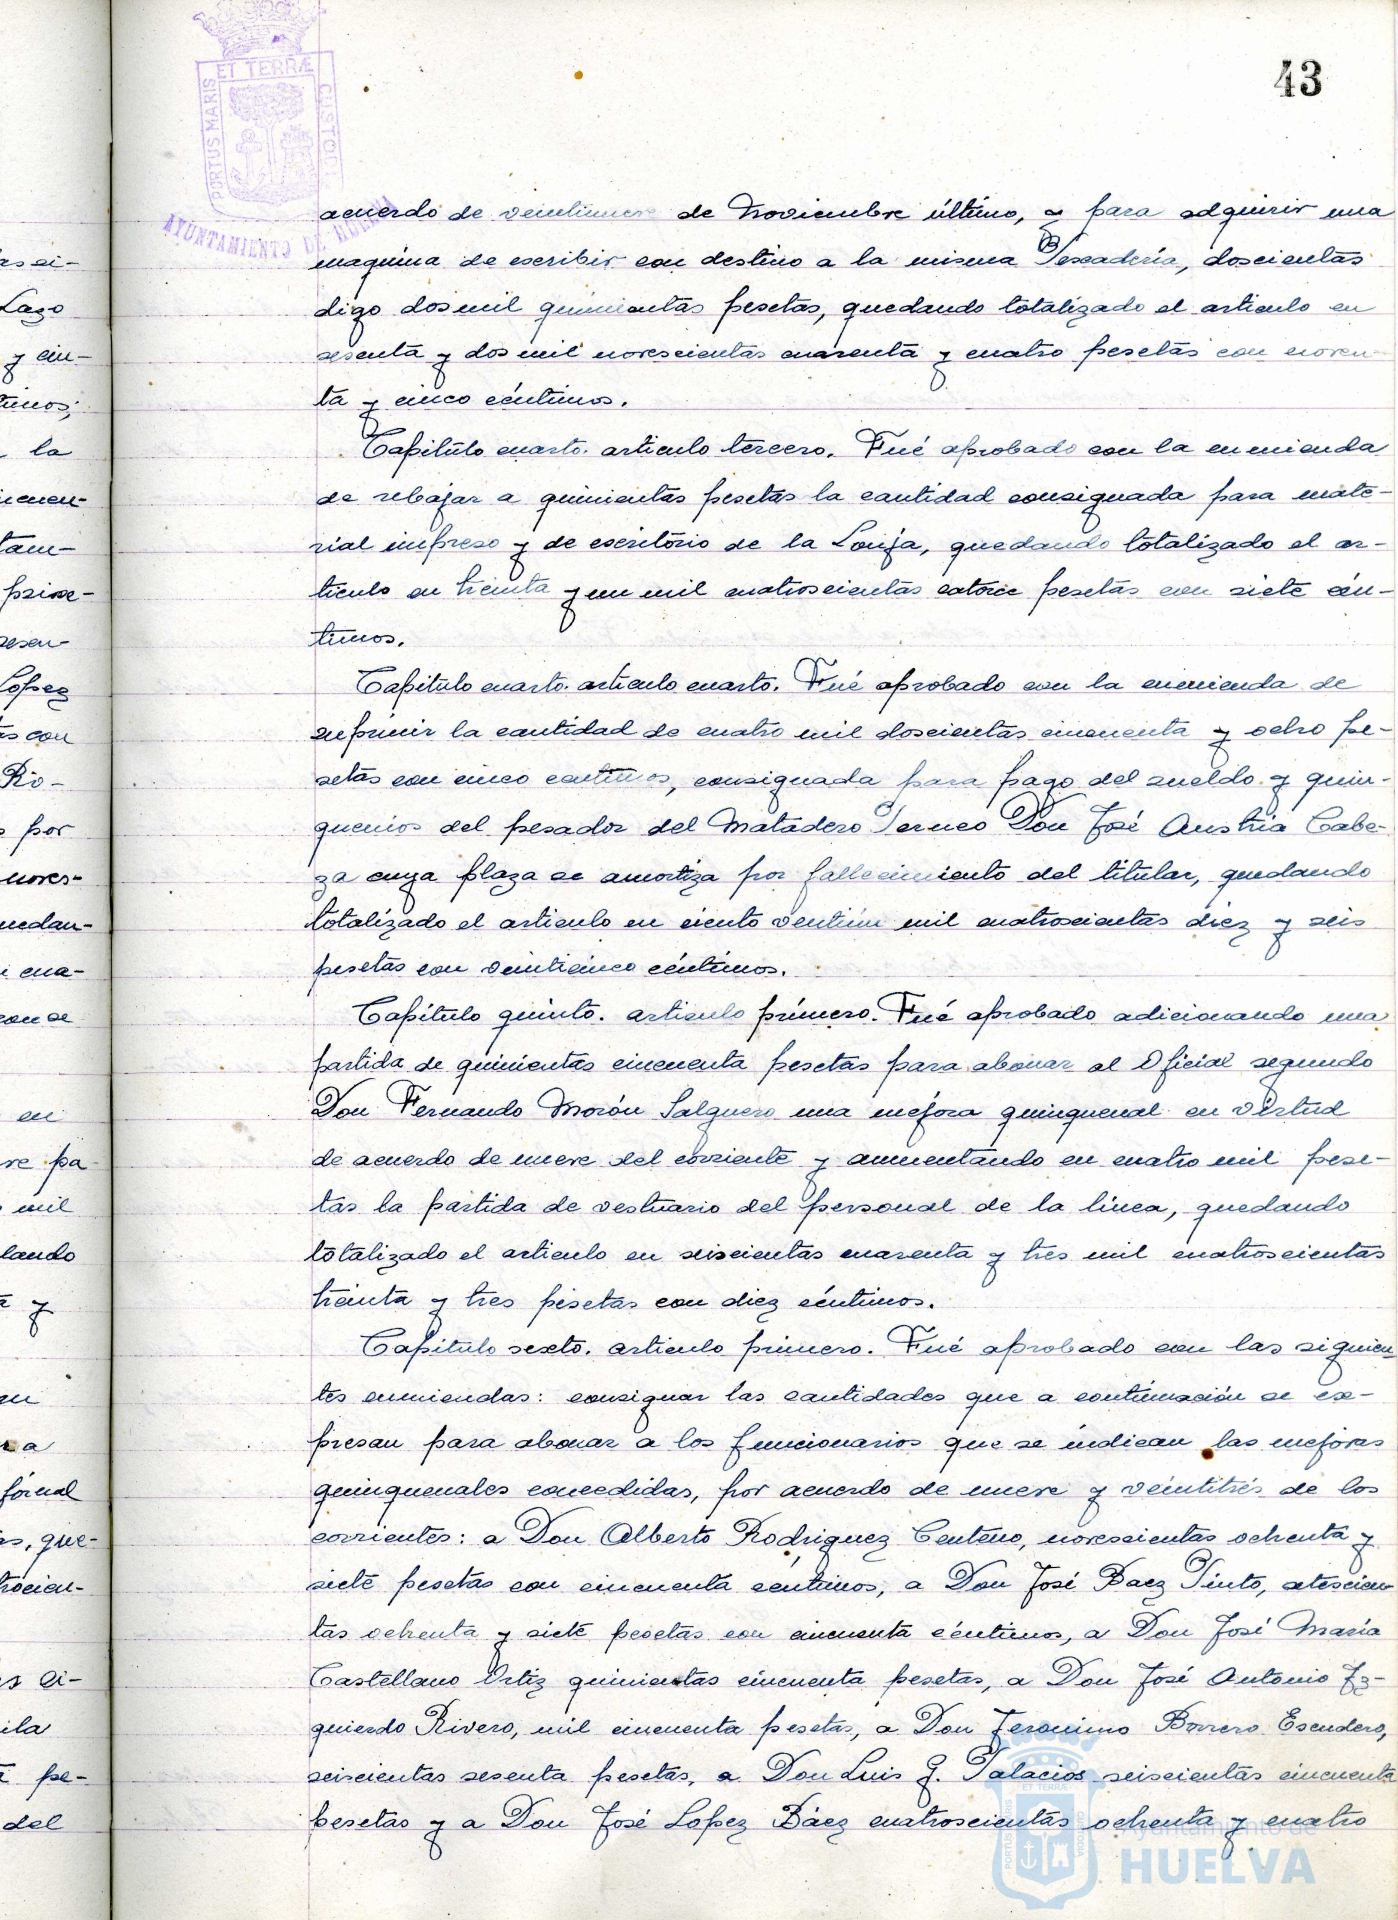 43
ET TERRÆ
PORTUS MARIS
CUSTODIA
AYUNTAMIENTO DE HUELVA
acuerdo de veintinueve de Noviembre último, y para adquirir una
maquina de escribir con destino a la misma Pescadería, doscientas
digo dos mil quinientas pesetas, quedando totalizado el articulo en
sesenta y dos mil novescientas cuarenta y cuatro pesetas con noven-
ta y cinco céntimos.
Capitulo cuarto. articulo tercero. Fué aprobado con la enmienda
de rebajar a quinientas pesetas la cantidad consignada para mate-
rial impreso y de escritorio de la Lonja, quedando totalizado el ar-
ticulo en treinta y un mil cuatroscientas catorce pesetas con siete cén-
timos.
Capitulo cuarto. articulo cuarto. Fué aprobado con la enmienda de
suprimir la cantidad de cuatro mil doscientas cincuenta y ocho pe-
setas con cinco centimos, consignada para pago del sueldo y quin-
quenios del pesador del Matadero Perneo Don José Austria Cabe-
za cuya plaza se amortiza por fallecimiento del titular, quedando
totalizado el articulo en ciento ventiún mil cuatroscientas diez y seis
pesetas con veinticinco céntimos.
Capítulo quinto. articulo primero. Fué aprobado adicionando una
partida de quinientas cincuenta pesetas para abonar al Oficial segundo
Don Fernando Morón Salguero una mejora quinquenal en virtud
de acuerdo de nueve del corriente y aumentando en cuatro mil pese-
tas la partida de vestuario del personal de la linea, quedando
totalizado el articulo en seiscientas cuarenta y tres mil cuatroscientas
treinta y tres pesetas con diez céntimos.
Capitulo sexto. articulo primero. Fué aprobado con las siguien-
tes enmiendas: consignar las cantidades que a continuación se ex-
presan para abonar a los funcionarios que se indican las mejoras
quinquenales concedidas, por acuerdo de nueve y veintitrés de los
corrientes: a Don Alberto Rodriguez Centeno, novescientas ochenta y
siete pesetas con cincuenta céntimos, a Don José Baez Pinto, setescien-
tas ochenta y siete pesetas con cincuenta céntimos, a Don José María
Castellano Ortiz quinientas cincuenta pesetas, a Don José Antonio Iz-
quierdo Rivero, mil cincuenta pesetas, a Don Jeronimo Borrero Escudero,
seiscientas sesenta pesetas, a Don Luis G. Palacios seiscientas cincuenta
pesetas y a Don José Lopez Báez cuatroscientas ochenta y cuatro
Ayuntamiento de
HUELVA